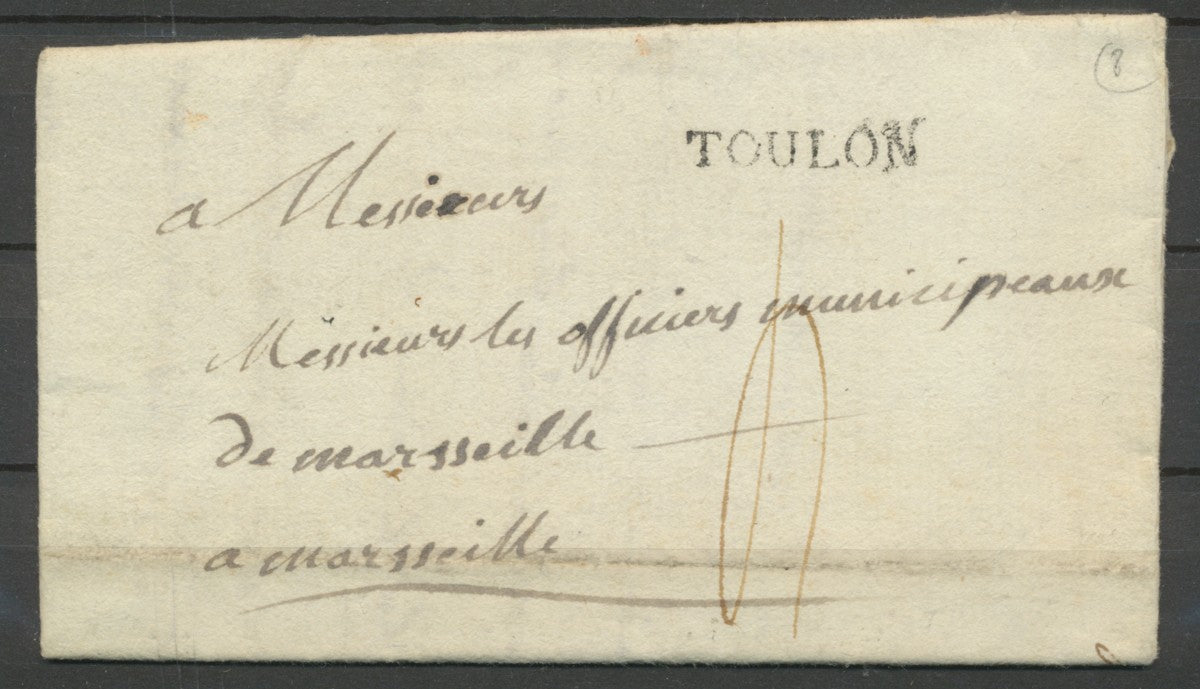 8
TOULON
a Messieurs
Messieurs les officiers municipeaux
de marsseille
a marsseille